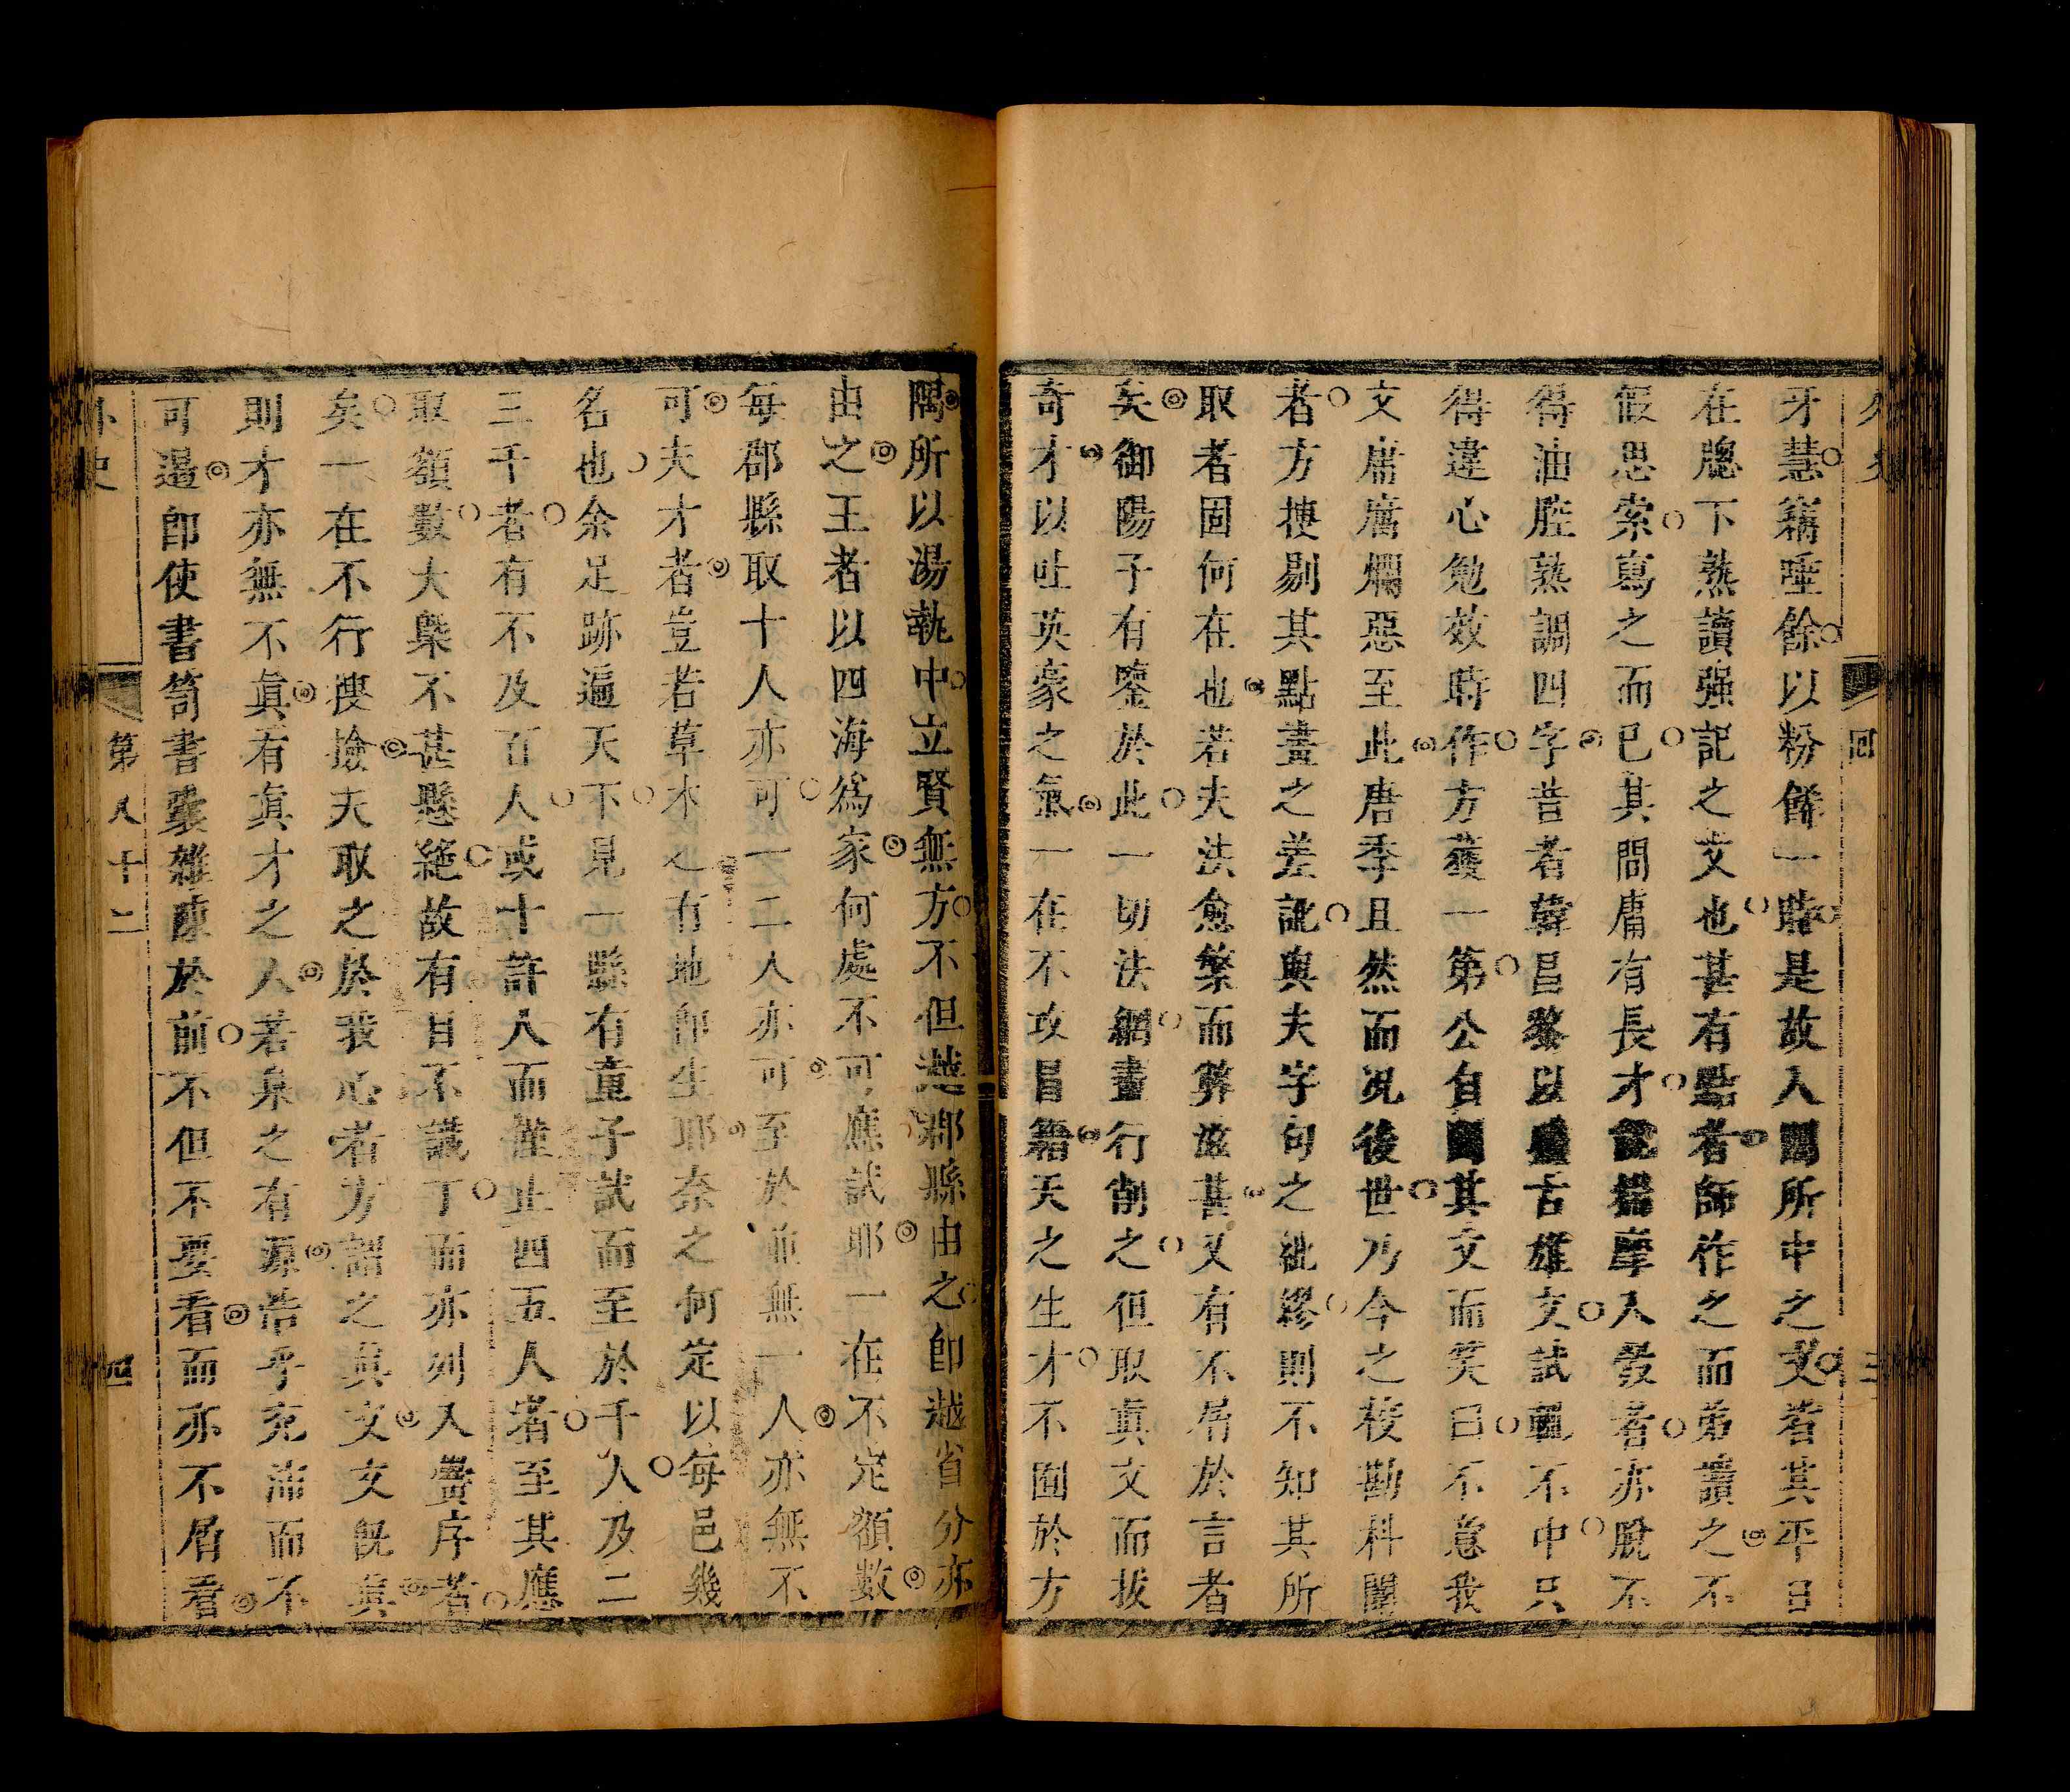 牙慧竊唾餘以粉飾一時是故入闈所中之文者其平日
在牕下熟讀强記之文也甚有點者師作之而弟讀之不
假思索寫之而已其間庸有長才說揣摩入彀者亦脫不
得油腔熟調四字昔者韓昌黎以古雄文試輒不中只
得違心勉效時作方獲一第公自閱其文而笑曰不意我
文庸腐爛惡至此唐季且然而况後世乃今之校勘科闈
者方捜剔其點畫之差訛與夫字句之紕繆則不知其所
取者固何在也若夫法愈繁而弊滋甚又有不屑於言者
矣御陽子有鑒於此一切法網盡行削之但取眞文而拔
奇才以吐英豪之氣一在不攻冒籍天之生才不囿於方
隅所以湯執中立賢無方不但越郡縣由之卽越省分亦
由之王者以四海爲家何處不可應試耶一在不定額數
每郡縣取十人亦可一二人亦可至於前無一人亦無不
可夫才者豈若草木之有地卽生耶奈之何定以每邑幾
名也余足跡遍天下見一縣有童子試而至於千人及二
三千者有不及百人或十許人而僅止四五人者至其應
取額數大槩不甚懸絕故有目不識丁而亦列入黌序者
矣一在不行搜撿夫取之於我心者方謂之眞文文旣眞
則才亦無不眞有眞才之人若泉之有源浩乎充沛而不
可遏卽使書笥書囊雜陳於前不但不要看而亦不屑看
外史
第八十二
四
回
三